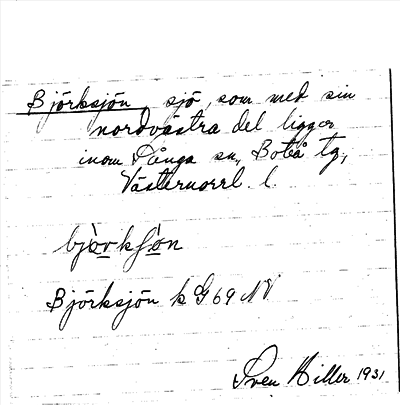 Björksjön, sjö, som med sin
nordvästra del ligger
inom Långa sn, Boteå tg,
Västernorrl. l.
Björksjön k G 69 NV
Sven Hiller 1931